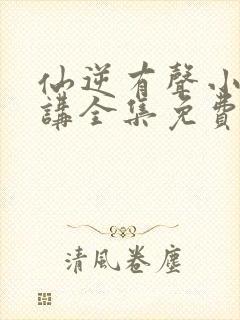 仙逆有聲小
講全集免費
清風卷塵